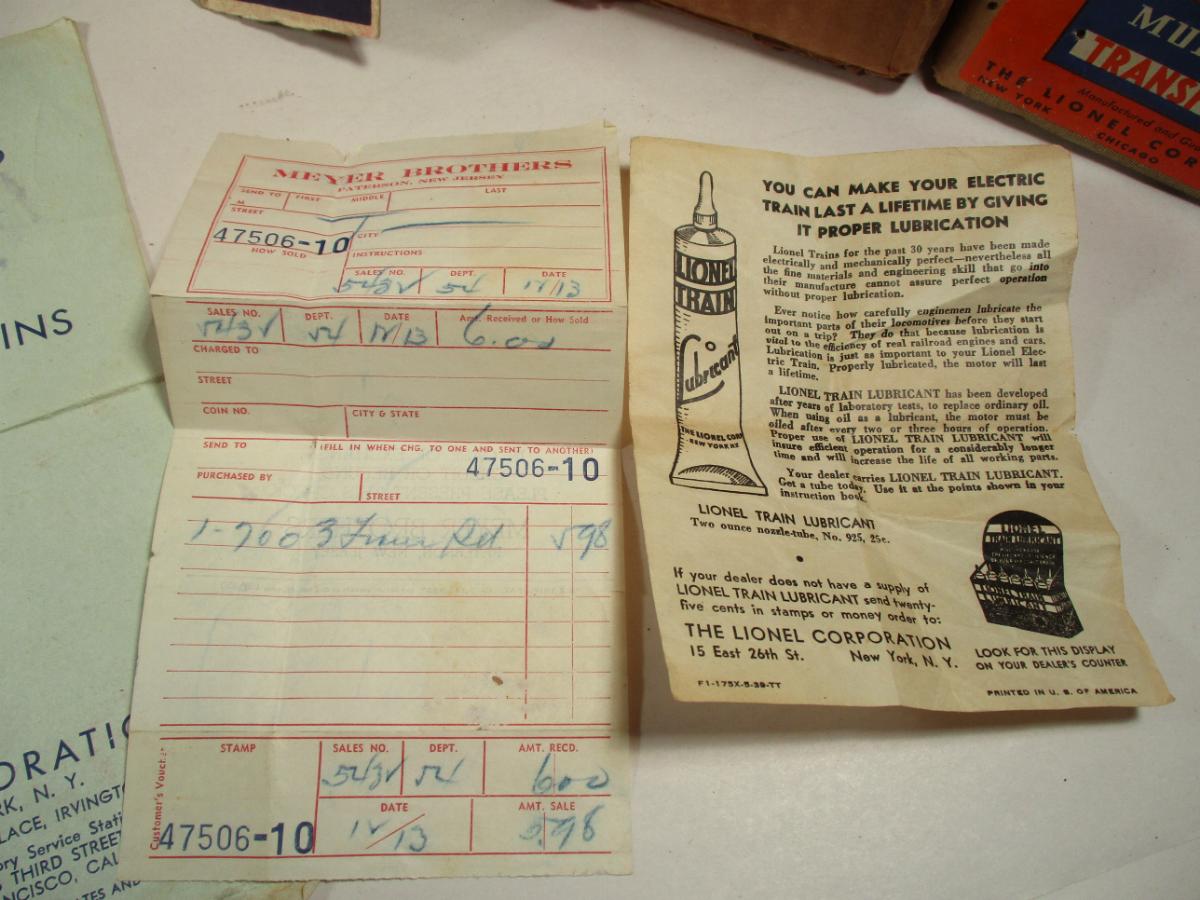 MEYER BROTHERS
PATERSON, NEW JERSEY
SEND TO FIRST MIDDLE LAST
M
STREET
47506-10
CITY
HOW SOLD
INSTRUCTIONS
SALES NO. DEPT. DATE
543V 54 12/13
SALES NO. DEPT. DATE Amt. Received or How Sold
543V 54 12/13 6.00
CHARGED TO
STREET
COIN NO. CITY & STATE
SEND TO (FILL IN WHEN CHG. TO ONE AND SENT TO ANOTHER)
47506-10
PURCHASED BY
STREET
1-700 3 598
STAMP SALES NO. DEPT. AMT. RECD.
543V 54 600
DATE AMT. SALE
12/13 5.98
47506-10
Customer's Voucher
YOU CAN MAKE YOUR ELECTRIC
TRAIN LAST A LIFETIME BY GIVING
IT PROPER LUBRICATION
Lionel Trains for the past 30 years have been made
electrically and mechanically perfect—nevertheless all
the fine materials and engineering skill that go into
their manufacture cannot assure perfect operation
without proper lubrication.
Ever notice how carefully enginemen lubricate the
important parts of their locomotives before they start
out on a trip? They do that because lubrication is
vital to the efficiency of real railroad engines and cars.
Lubrication is just as important to your Lionel Elec-
tric Train. Properly lubricated, the motor will last
a lifetime.
LIONEL TRAIN LUBRICANT has been developed
after years of laboratory tests, to replace ordinary oil.
When using oil as a lubricant, the motor must be
oiled after every two or three hours of operation.
Proper use of LIONEL TRAIN LUBRICANT will
insure efficient operation for a considerably longer
time and will increase the life of all working parts.
Your dealer carries LIONEL TRAIN LUBRICANT.
Get a tube today. Use it at the points shown in your
instruction book.
LIONEL
TRAIN
Lubricant
THE LIONEL CORP.
NEW YORK NY
LIONEL TRAIN LUBRICANT
Two ounce nozzle-tube, No. 925, 25c.
If your dealer does not have a supply of
LIONEL TRAIN LUBRICANT send twenty-
five cents in stamps or money order to:
THE LIONEL CORPORATION
15 East 26th St. New York, N. Y.
F1-175X-5-39-TT
LIONEL
TRAIN LUBRICANT
LIONEL TRAIN
LUBRICANT
LOOK FOR THIS DISPLAY
ON YOUR DEALER'S COUNTER
PRINTED IN U. S. OF AMERICA
MU
TRANS
Manufactured and Gua
THE LIONEL COR
NEW YORK CHICAGO
INS
ORATIO
RK, N. Y.
LACE, IRVINGT
ory Service Stati
THIRD STREET
NCISCO, CAL
TES AND